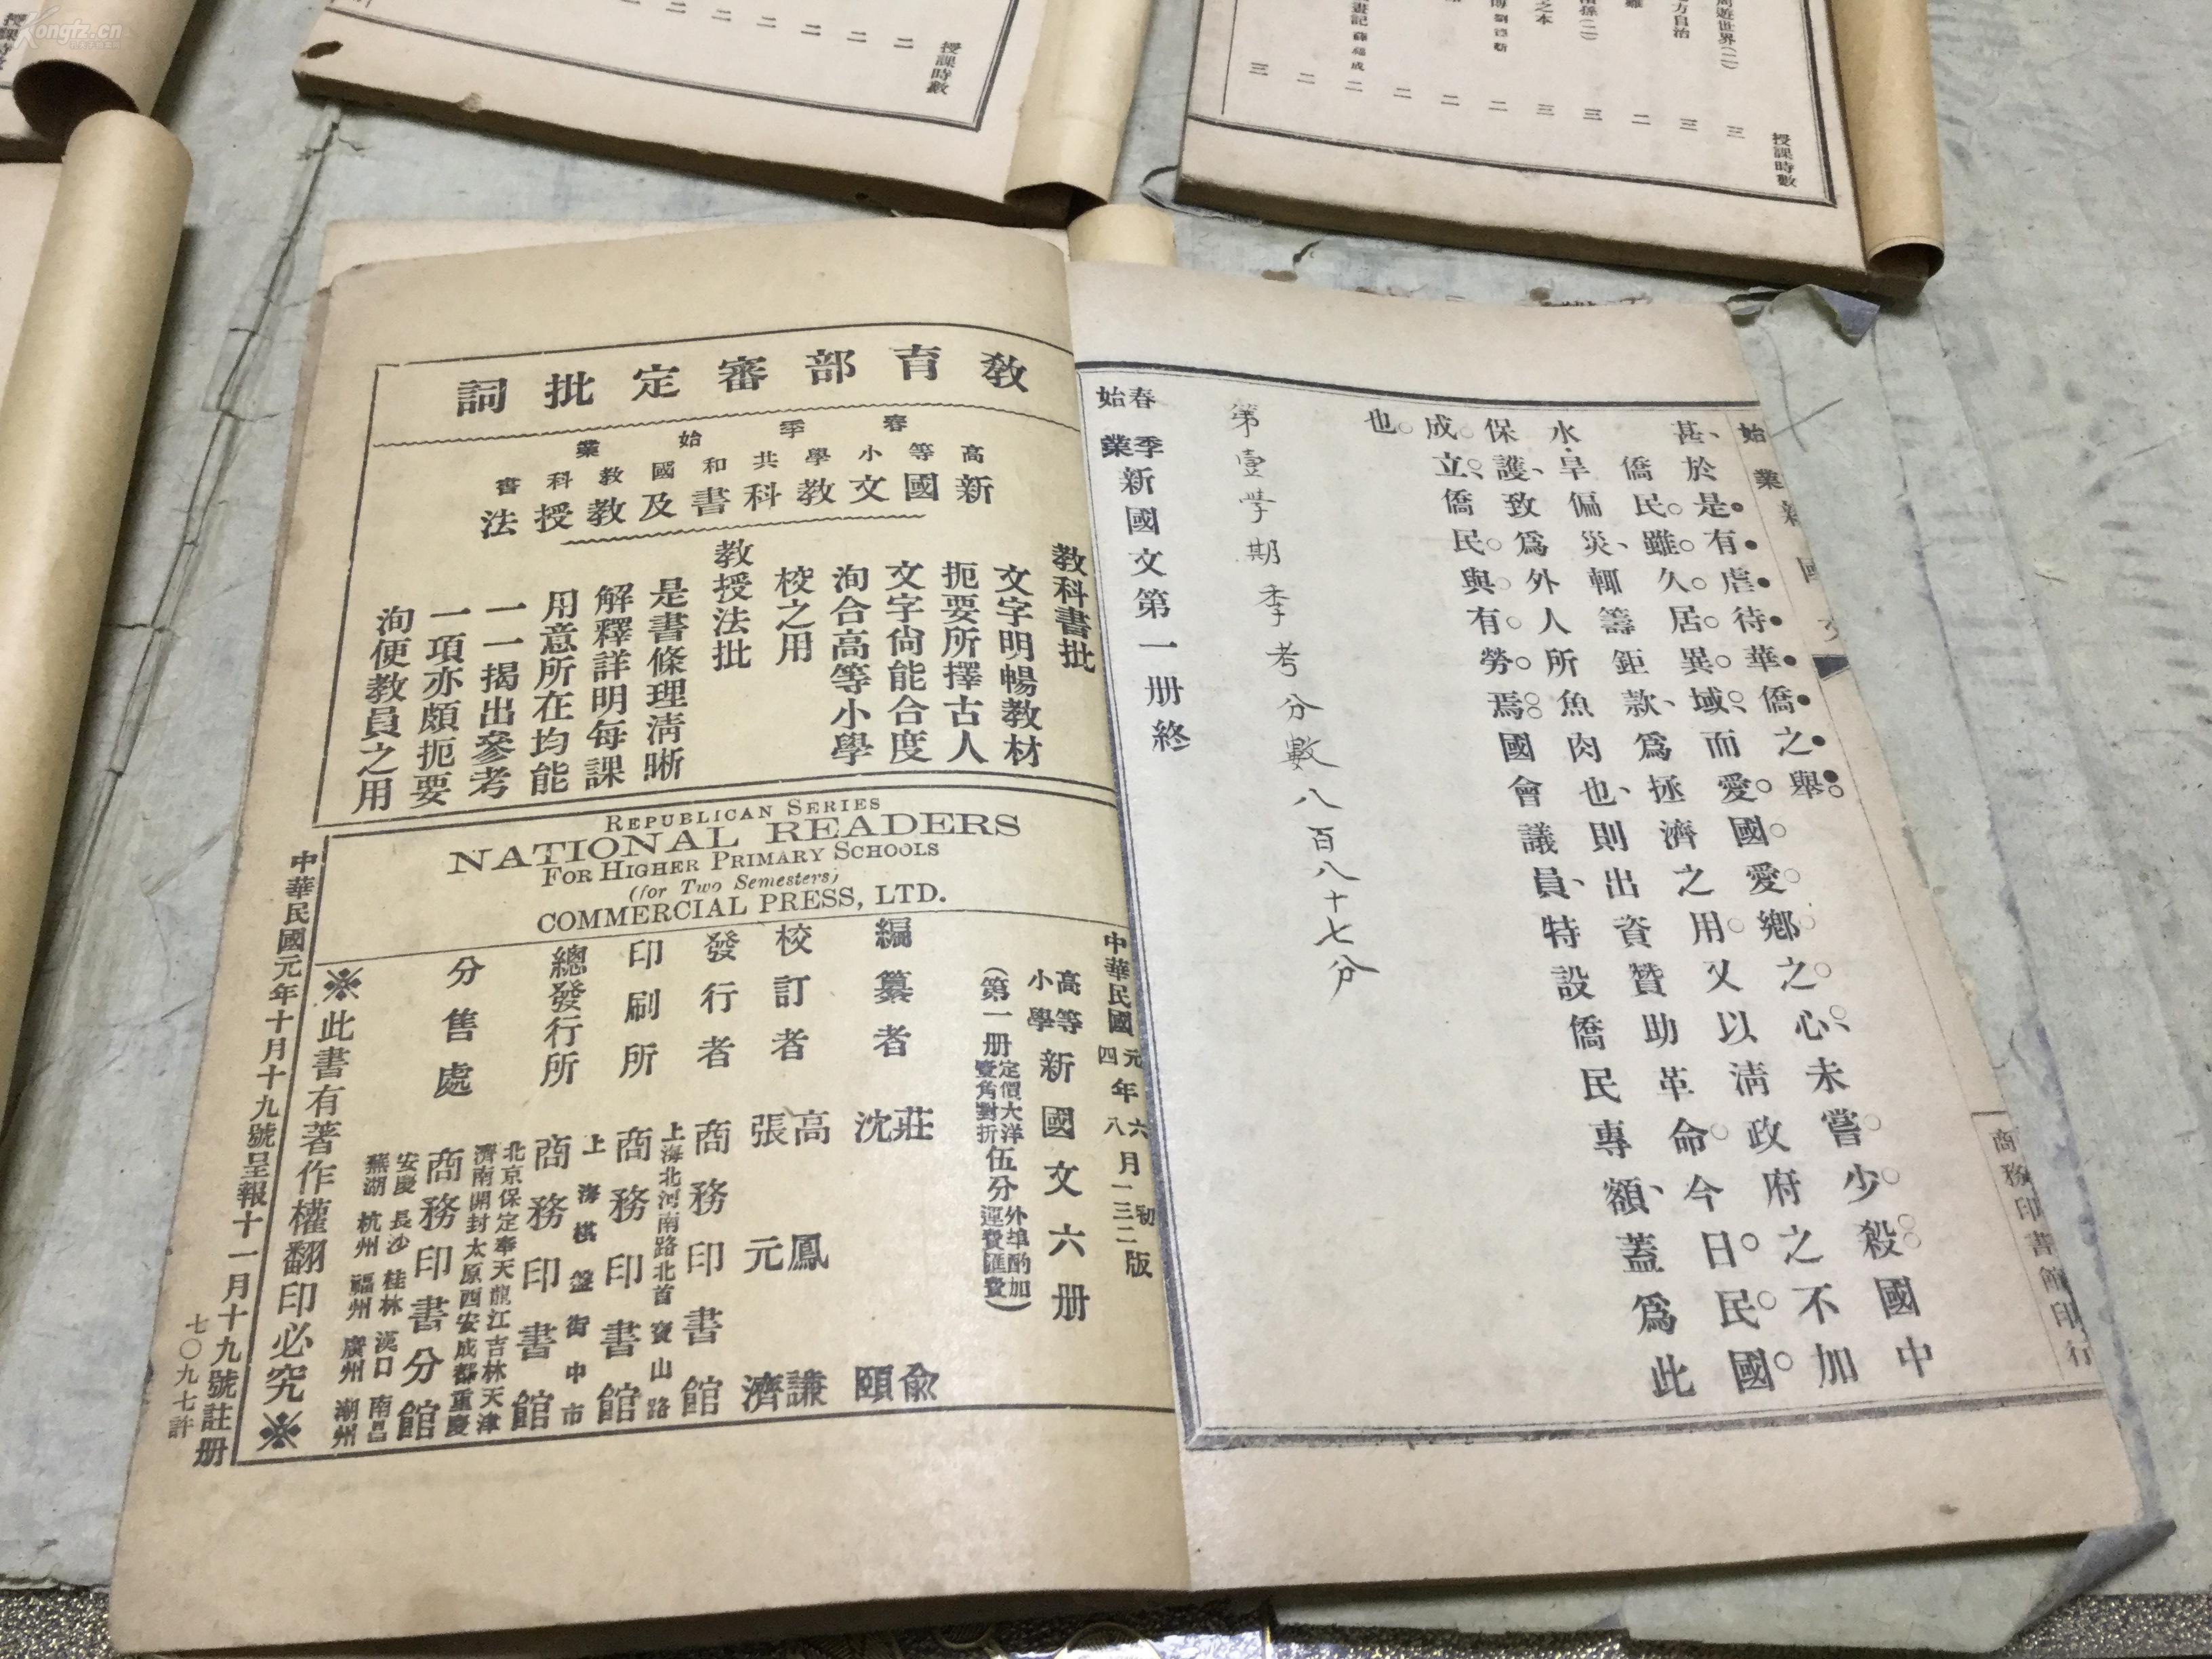 Kongfz.cn
授課時數
二 二 二 二 二 二
周遊世界(二) 三
方自治 三
二
猴孫(二) 三
之本 三
二
二
二
畫記 二
二
三
授課時數
始業新國文
商務印書館印行
甚、於是有虐待華僑之舉。
僑民雖久居異域、而愛國愛鄉之心、未嘗少殺、國中
水旱偏災、輒籌鉅款、爲拯濟之用、又以淸政府之不加
保護、致爲外人所魚肉也、則出資贊助革命、今日民國
成立、僑民與有勞焉。國會議員、特設僑民專額、蓋爲此
也。
第壹學期季考分數八百八十七分
春季始業新國文第一册終
教育部審定批詞
春季始業
高等小學共和國教科書
新國文教科書及教授法
教科書批
文字明暢教材
扼要所擇古人
文字尙能合度
洵合高等小學
校之用
教授法批
是書條理淸晰
解釋詳明每課
用意所在均能
一一揭出參考
一項亦頗扼要
洵便教員之用
REPUBLICAN SERIES
NATIONAL READERS
FOR HIGHER PRIMARY SCHOOLS
(for Two Semesters)
COMMERCIAL PRESS, LTD.
中華民國元年六月初版
四年八月一三二版
高等小學新國文六册
(第一册定價大洋壹角對折伍分外埠酌加運費匯費)
編纂者 莊俞 沈頤
校訂者 高鳳謙 張元濟
發行者 商務印書館
上海北河南路北首寶山路
印刷所 商務印書館
上海棋盤街中市
總發行所 商務印書館
北京保定奉天龍江吉林天津
濟南開封太原西安成都重慶
分售處 商務印書分館
安慶長沙桂林漢口南昌
蕪湖杭州福州廣州潮州
※此書有著作權翻印必究※
中華民國元年十月十九號呈報十一月十九號註册
七〇九七許